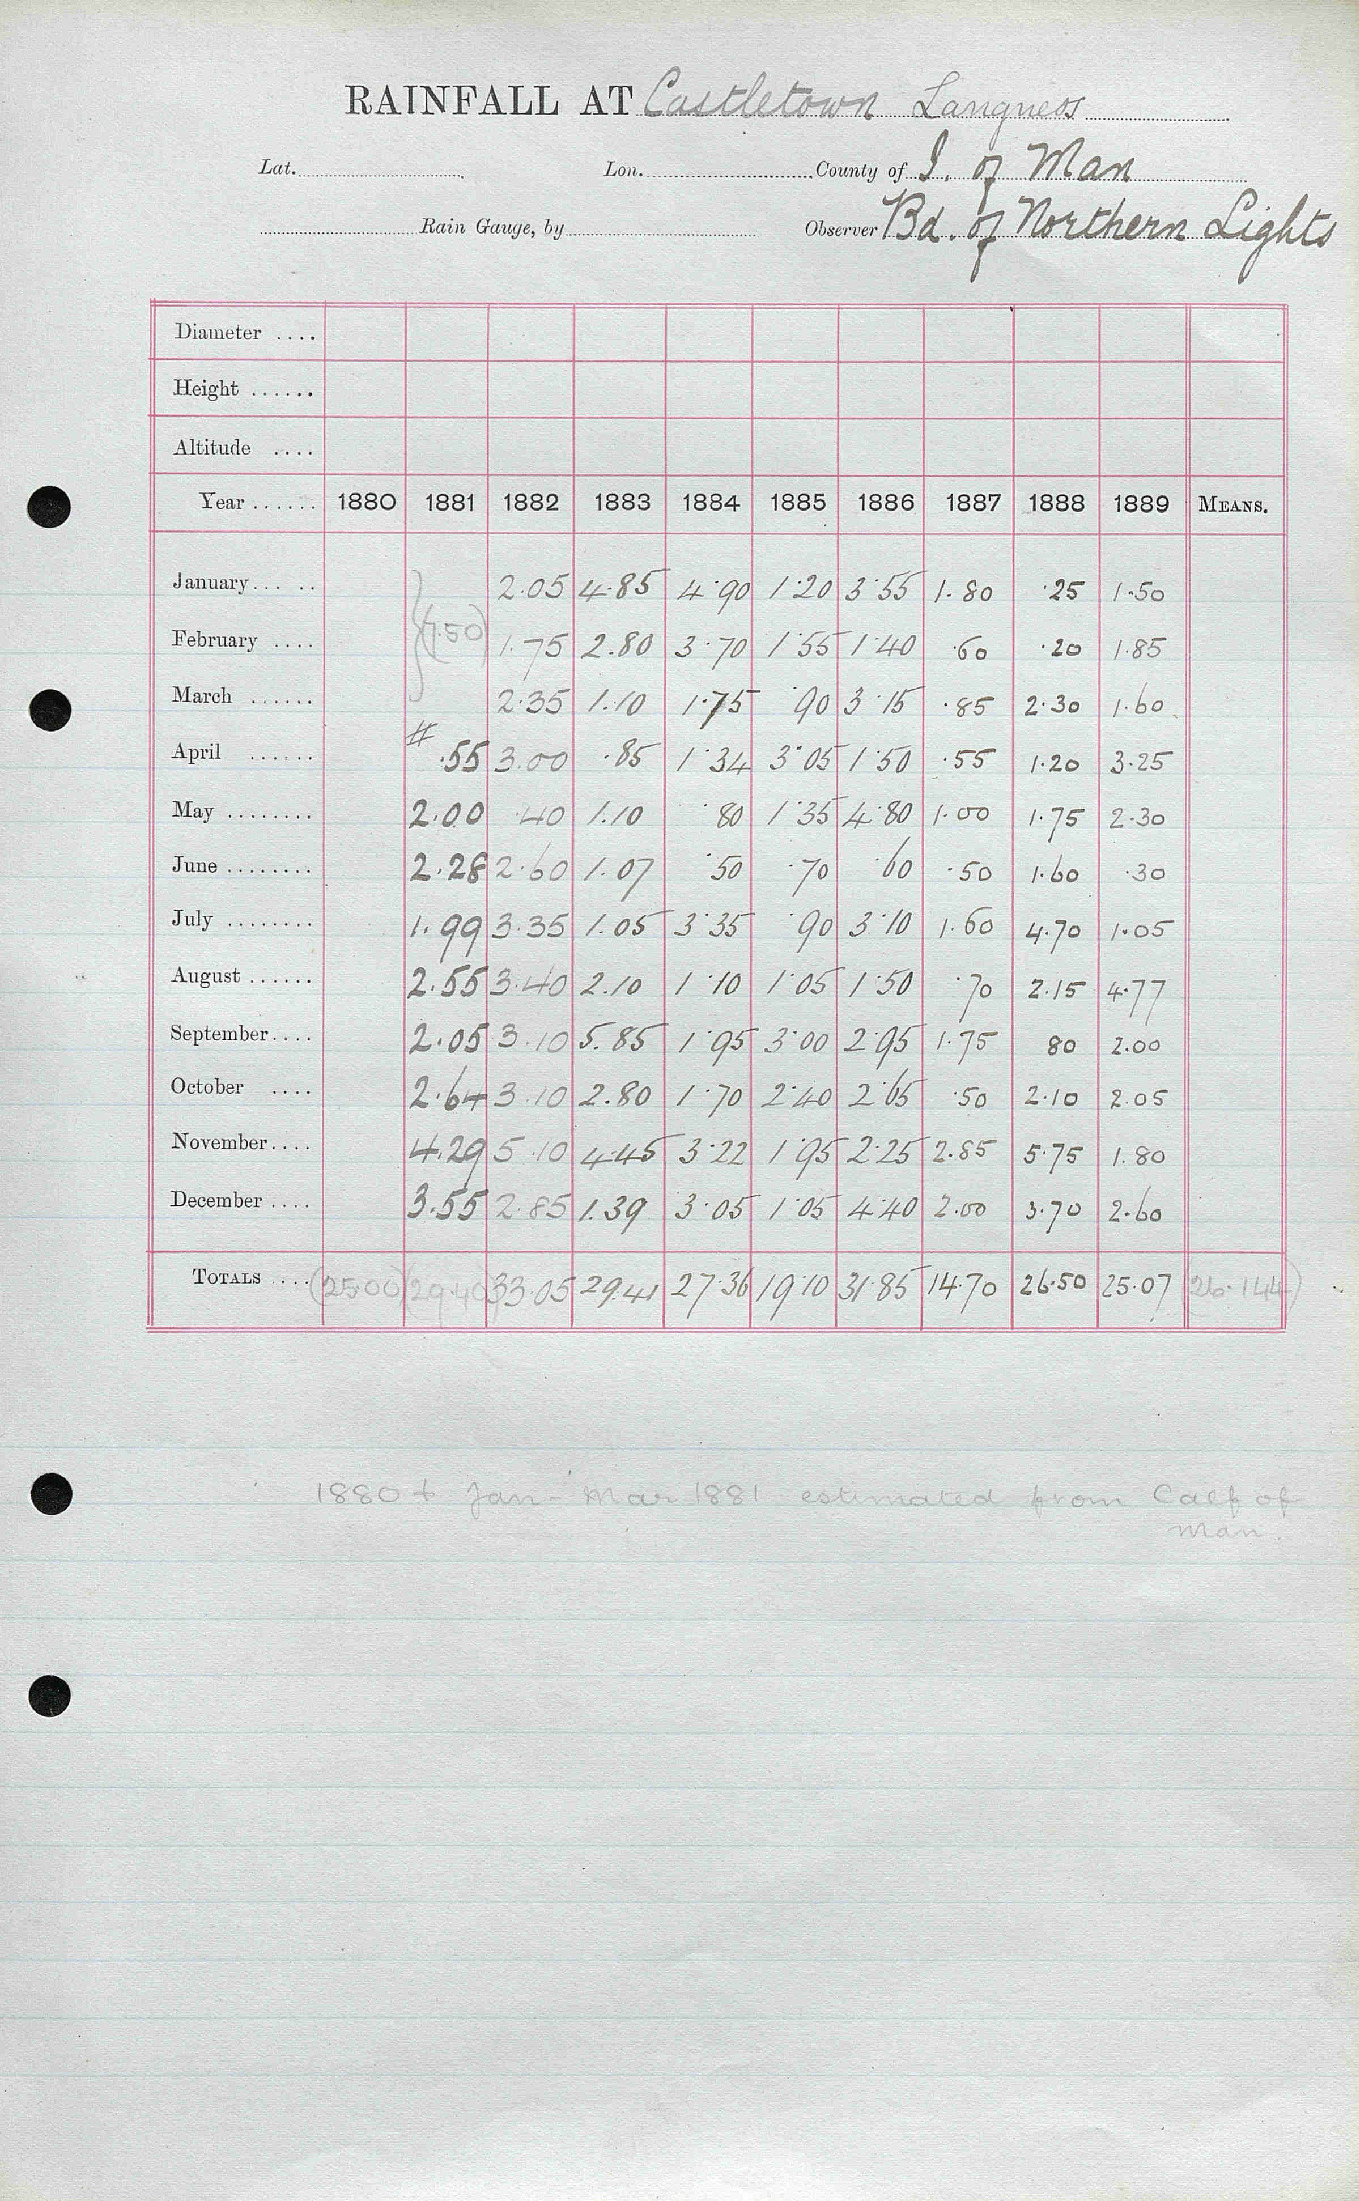 RAINFALL AT Castletown Langness
Lat. Lon. County of I. of Man
Rain Gauge, by Observer Bd. of Northern Lights
Diameter ....
Height ......
Altitude ....
Year ...... 1880 1881 1882 1883 1884 1885 1886 1887 1888 1889 MEANS.
January... .. 2.05 4.85 4.90 1.20 3.55 1.80 .25 1.50
February .... (7.50) 1.75 2.80 3.70 1.55 1.40 .60 .20 1.85
March ...... 2.35 1.10 1.75 .90 3.15 .85 2.30 1.60
April ...... # .55 3.00 .85 1.34 3.05 1.50 .55 1.20 3.25
May ........ 2.00 .40 1.10 .80 1.35 4.80 1.00 1.75 2.30
June ........ 2.28 2.60 1.07 .50 .70 .60 .50 1.60 .30
July ........ 1.99 3.35 1.05 3.35 .90 3.10 1.60 4.70 1.05
August ...... 2.55 3.40 2.10 1.10 1.05 1.50 .70 2.15 4.77
September.... 2.05 3.10 5.85 1.95 3.00 2.95 1.75 80 2.00
October .... 2.64 3.10 2.80 1.70 2.40 2.65 .50 2.10 2.05
November.... 4.29 5.10 4.45 3.22 1.95 2.25 2.85 5.75 1.80
December .... 3.55 2.85 1.39 3.05 1.05 4.40 2.00 3.70 2.60
TOTALS .... (25.00) (29.40) 33.05 29.41 27.36 19.10 31.85 14.70 26.50 25.07 (26.144)
1880 + Jan - Mar 1881 estimated from Calf of
Man.